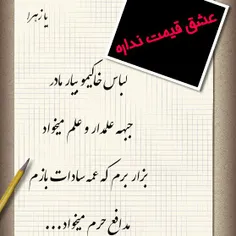 یا زهرا
عشق قیمت نداره
لباس خاکیمو بیار مادر
جبهه علمدار و علم میخواد
بزار برم که عمه سادات بازم
مدافع حرم میخواد...